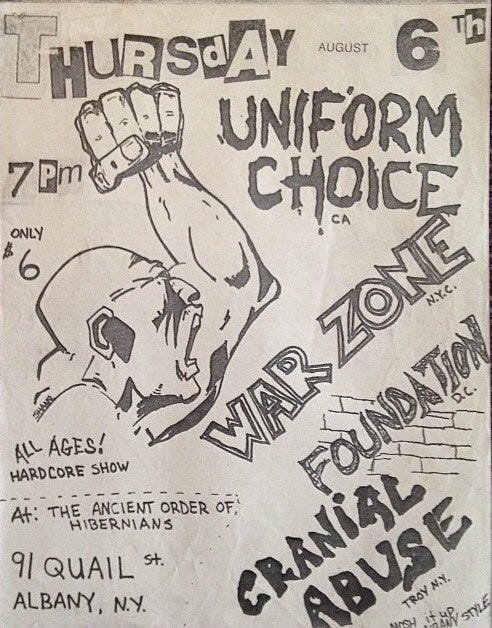 THURSdAY AUGUST 6 Th
7 Pm
ONLY
$6
UNIFORM
CHOICE
CA
WAR ZONE
N.Y.C.
FOUNDATION
D.C.
CRANiAL
ABUSE
TROY N.Y.
MOSH it up
ALBANY STYLE
ALL AGES!
HARDCORE SHOW
At: THE ANCIENT ORDER OF
HIBERNIANS
91 QUAIL St.
ALBANY, N.Y.